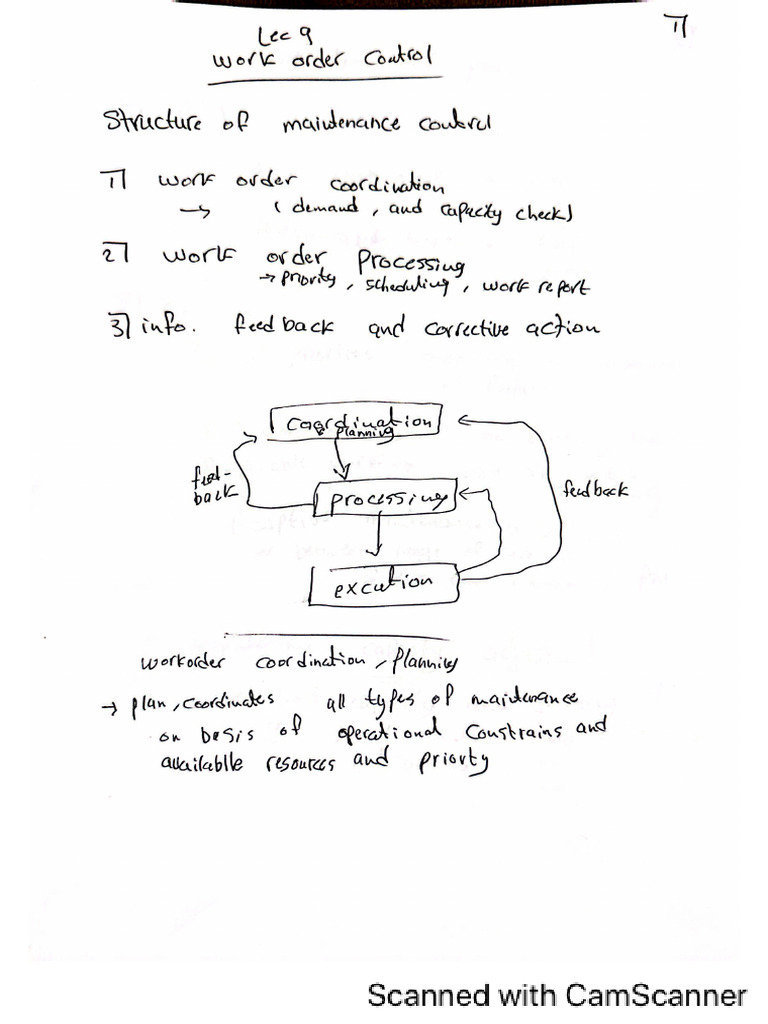 1]
Lec 9
work order control
Structure of maintenance control
1] work order coordination
→ (demand, and capacity check)
2] work order Processing
→ priority, scheduling, work report
3] info. feedback and corrective action
coordination
& planning
feed-
back
processing
feedback
excution
workorder coordination, planning
→ plan, coordinates all types of maintenance
on basis of operational constrains and
availablle resources and priorty
Scanned with CamScanner